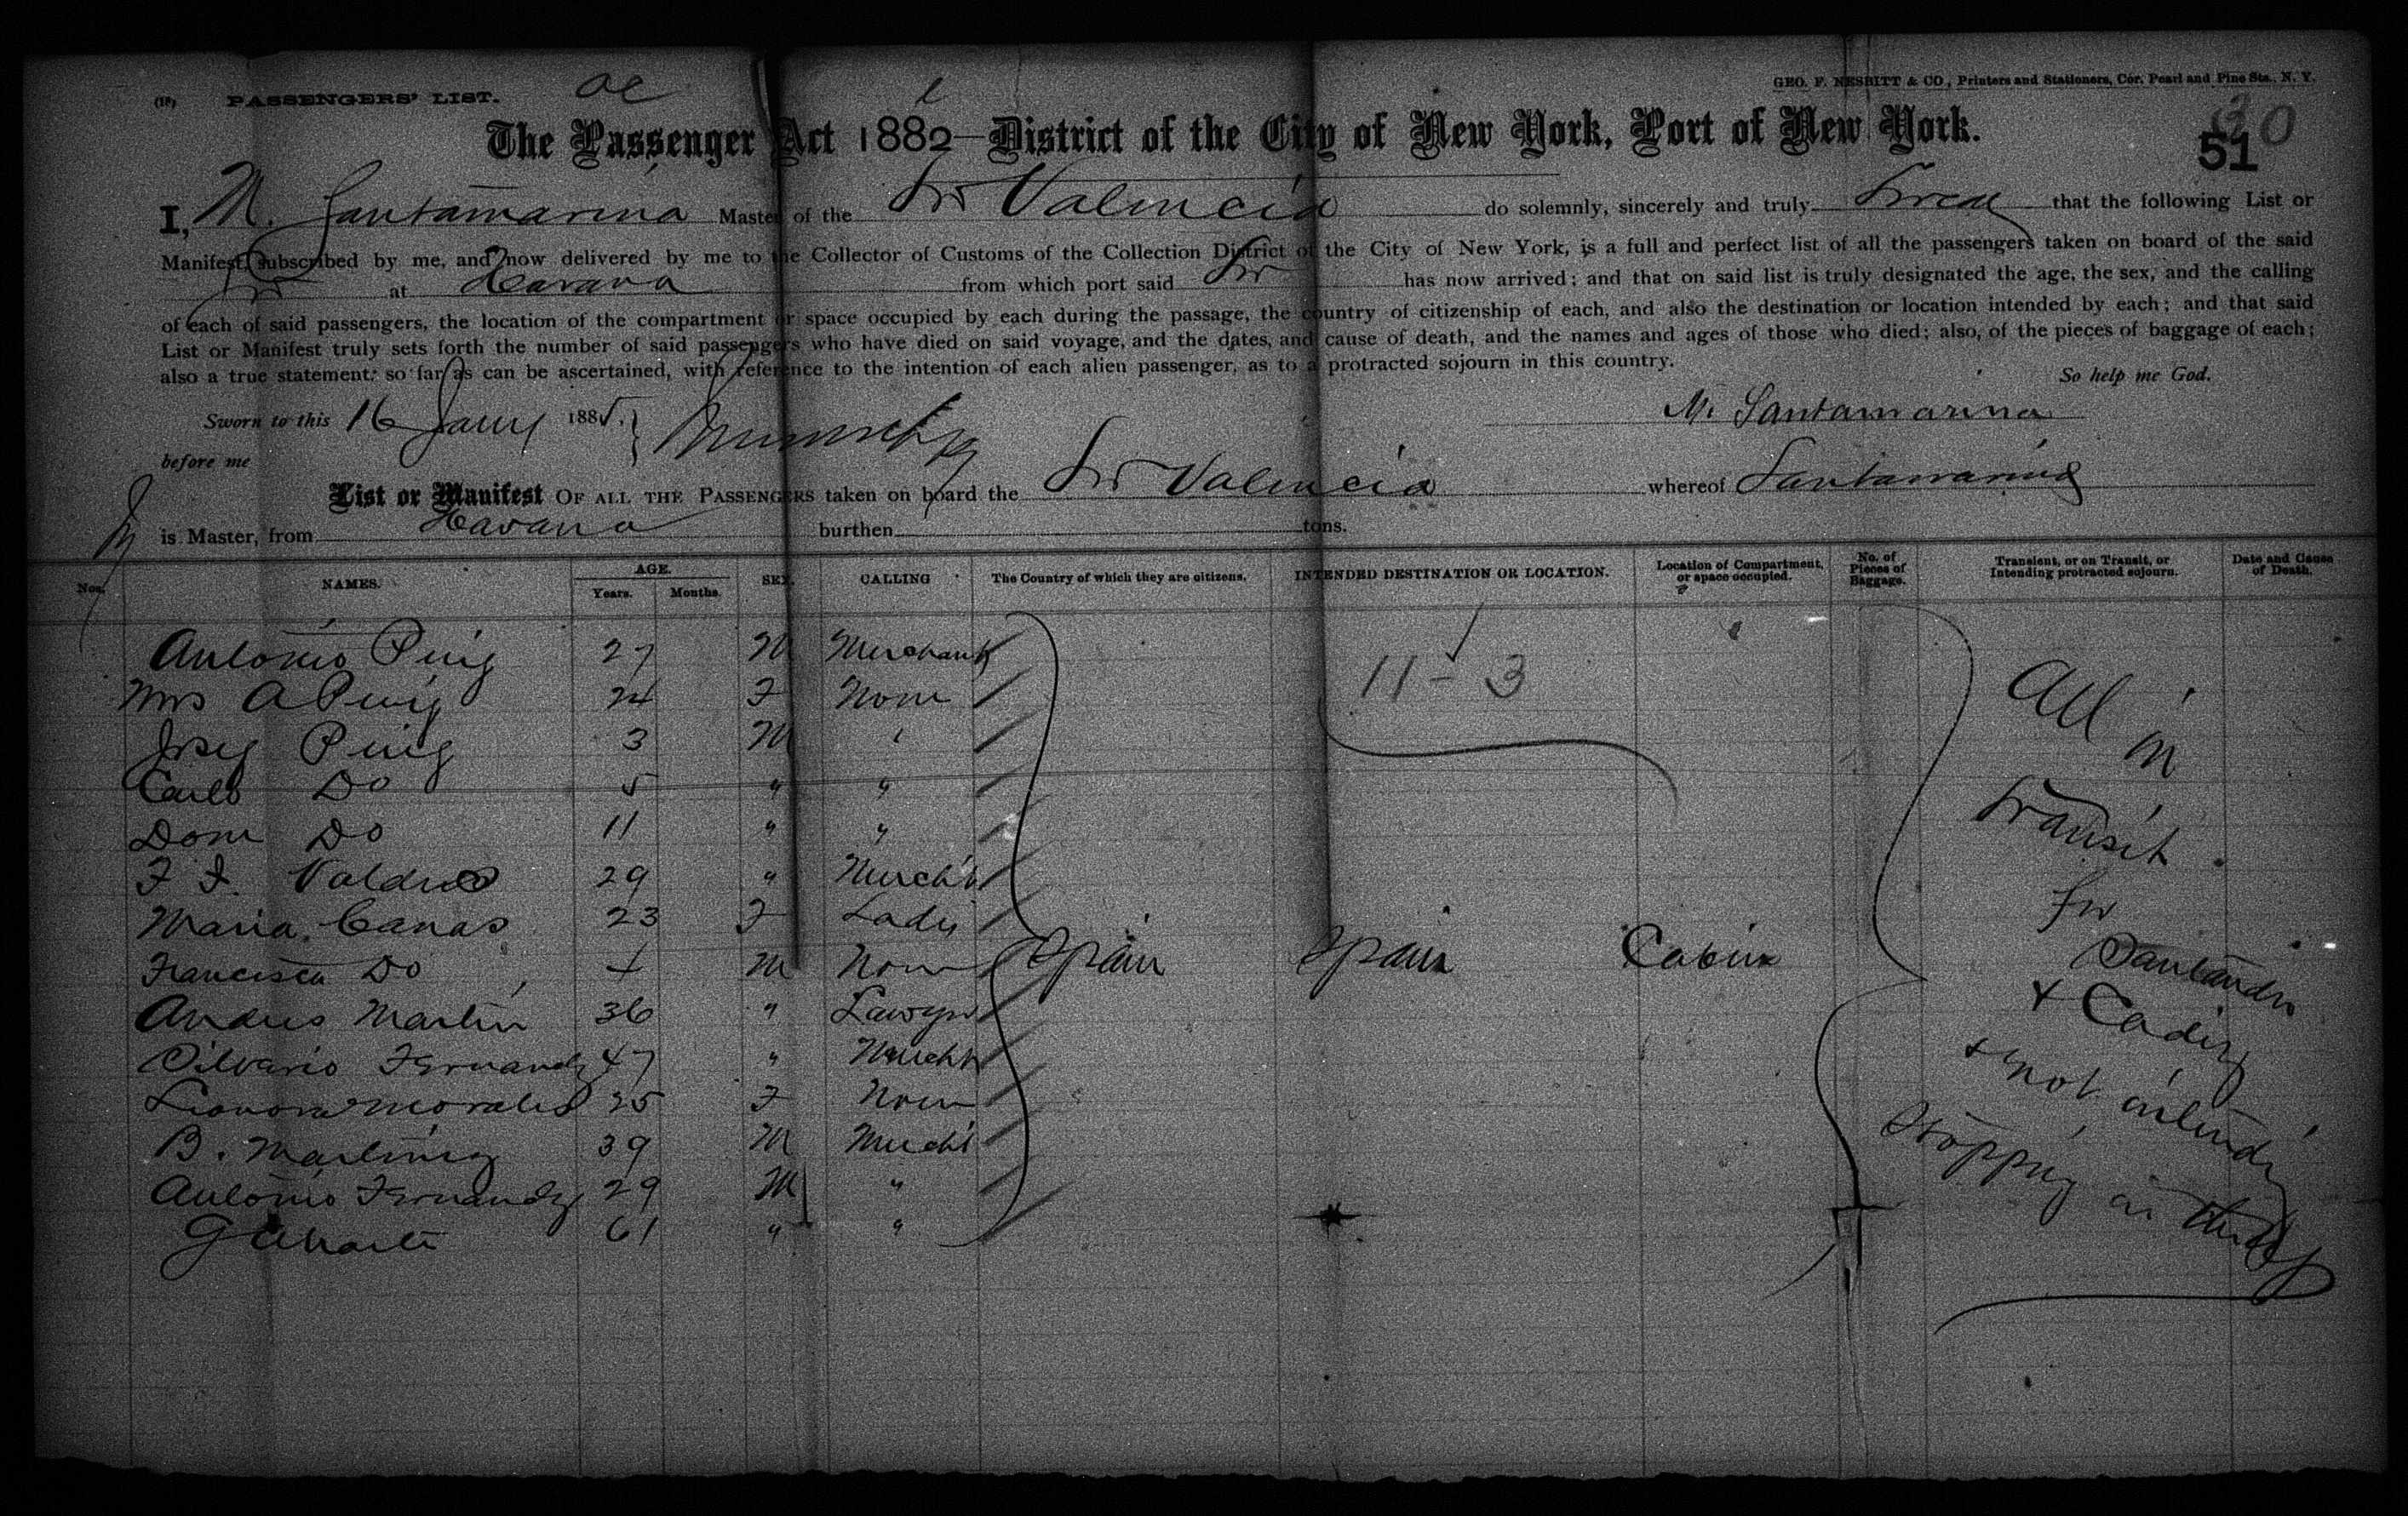 (18) PASSENGERS' LIST.
GEO. F. NESBITT & CO., Printers and Stationers, Cor. Pearl and Pine Sts., N. Y.
The Passenger Act 1882—District of the City of New York, Port of New York.
30
51
I, M. Santamarina Master of the Str Valencia do solemnly, sincerely and truly Swear that the following List or
Manifest, subscribed by me, and now delivered by me to the Collector of Customs of the Collection District of the City of New York, is a full and perfect list of all the passengers taken on board of the said
Str at Havana from which port said Str has now arrived; and that on said list is truly designated the age, the sex, and the calling
of each of said passengers, the location of the compartment or space occupied by each during the passage, the country of citizenship of each, and also the destination or location intended by each; and that said
List or Manifest truly sets forth the number of said passengers who have died on said voyage, and the dates, and cause of death, and the names and ages of those who died; also, of the pieces of baggage of each;
also a true statement, so far as can be ascertained, with reference to the intention of each alien passenger, as to a protracted sojourn in this country.
So help me God.
Sworn to this 16 Jany 1885. M. Santamarina
before me
List or Manifest OF ALL THE PASSENGERS taken on board the Str Valencia whereof Santamarina
is Master, from Havana burthen tons.
Nos. NAMES. AGE. Years. Months. SEX. CALLING The Country of which they are citizens. INTENDED DESTINATION OR LOCATION. Location of Compartment, or space occupied. No. of Pieces of Baggage. Transient, or on Transit, or Intending protracted sojourn. Date and Cause of Death.
Antonio Puig 27 M Merchant
11-3
Mrs A Puig 24 F None
Puig 3 M "
Carlo Do 5 " "
Dom Do 11 " "
F F. Valdes 29 " Mercht
Maria Canas 23 F Lady
Francisca Do M None Spain Spain Cabin
Andres Martin 36 " Lawyer
Silverio Fernandz 47 " Mercht
Leonora Morales 25 F None
B. Martinez 39 M Mercht
Antonio Fernandz 29 M "
61 " "
All in
Transit
for
Santander
& Cadiz
& not intendg
stopping in the US